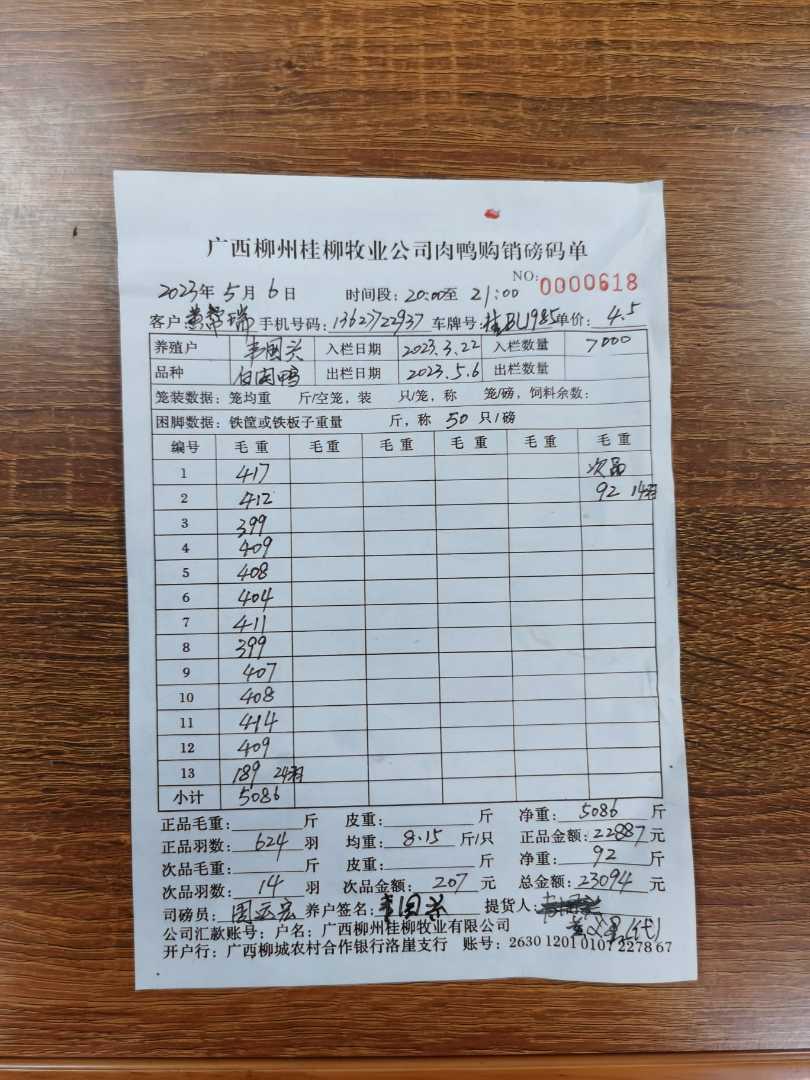 广西柳州桂柳牧业公司肉鸭购销磅码单
NO: 0000618
2023年 5月 6日 时间段: 20:00至 21:00
客户: 黄常瑞 手机号码: 13627722937 车牌号: 桂BL1985 单价: 4.5
养殖户 韦国兴 入栏日期 2023.3.22 入栏数量 7000
品种 白肉鸭 出栏日期 2023.5.6 出栏数量
笼装数据: 笼均重 斤/空笼, 装 只/笼, 称 笼/磅, 饲料余数:
困脚数据: 铁筐或铁板子重量 斤, 称 50 只/磅
编号 毛重 毛重 毛重 毛重 毛重 毛重
1 417 次品
2 412 92 14羽
3 399
4 409
5 408
6 404
7 411
8 399
9 407
10 408
11 414
12 409
13 189 24羽
小计 5086
正品毛重: 斤 皮重: 斤 净重: 5086 斤
正品羽数: 624 羽 均重: 8.15 斤/只 正品金额: 22887 元
次品毛重: 斤 皮重: 斤 净重: 92 斤
次品羽数: 14 羽 次品金额: 207 元 总金额: 23094 元
司磅员: 周运宏 养户签名: 韦国兴 提货人:
(代)
公司汇款账号: 户名: 广西柳州桂柳牧业有限公司
开户行: 广西柳城农村合作银行洛崖支行 账号: 2630 1201 0107 2278 67